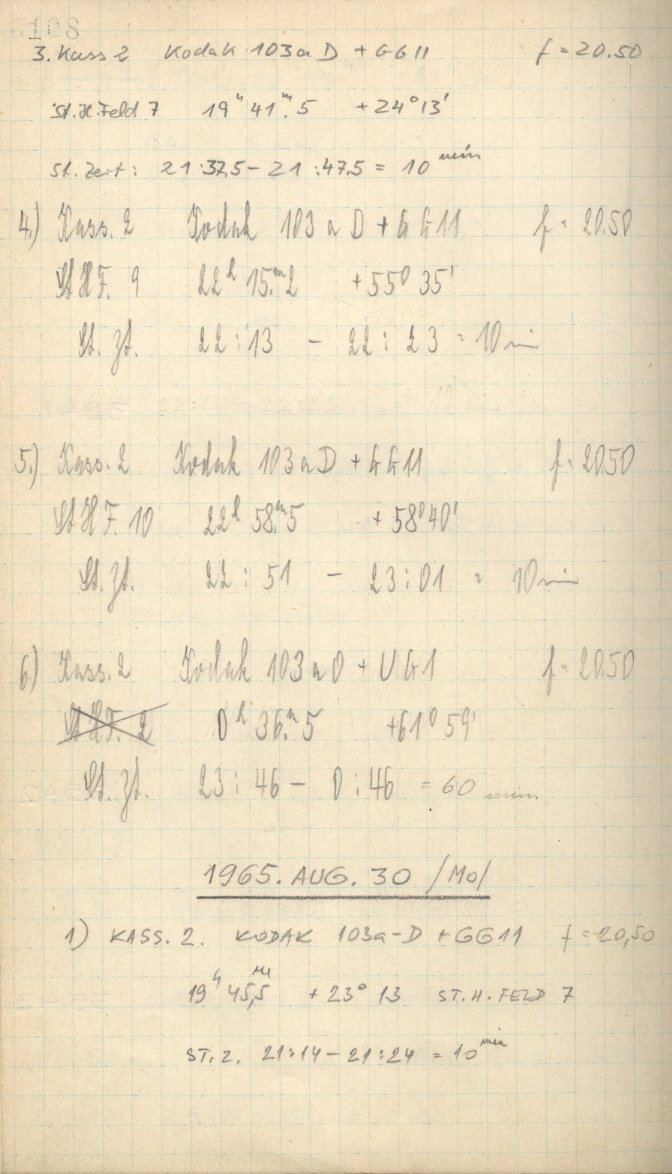 108
3. Kass 2 Kodak 103a D + GG11 f = 20.50
St.H.Feld 7 19ʰ 41ᵐ.5 +24°13'
St. Zeit: 21:37,5 - 21:47.5 = 10 min
4.) Kass. 2 Kodak 103 a D + GG11 f = 20.50
St H F. 9 22ʰ 15.ᵐ2 +55° 35'
St. Zt. 22:13 - 22:23 = 10 min
5.) Kass. 2 Kodak 103 a D + GG11 f = 20.50
St H F. 10 22ʰ 58.ᵐ5 +58°40'
St. Zt. 22:51 - 23:01 = 10 min
6.) Kass. 2 Kodak 103 a O + UG1 f = 20.50
St H F. 2 0ʰ 36.ᵐ5 +61° 59'
St. Zt. 23:46 - 0:46 = 60 min.
1965. AUG. 30 /Mo/
1) KASS. 2. KODAK 103a-D + GG11 f = 20,50
19ʰ 45,5ᵐ + 23° 13 ST.H.FELD 7
ST. Z. 21:14 - 21:24 = 10 min